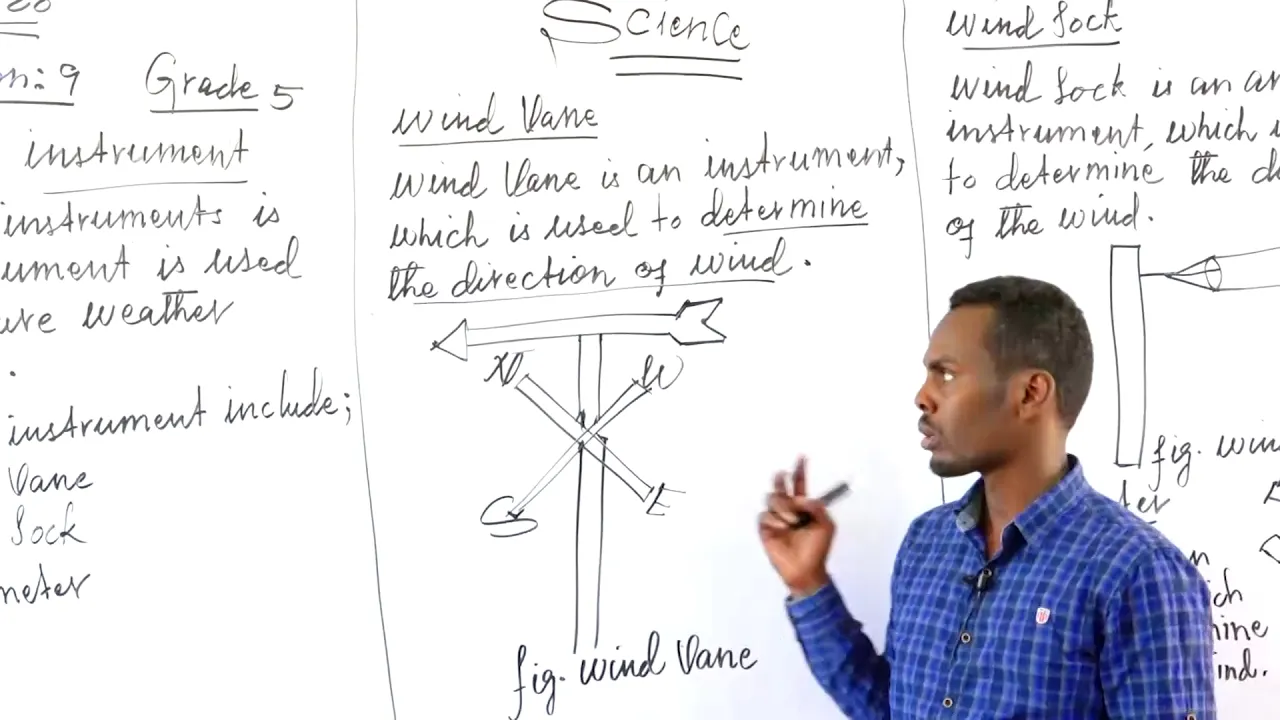 20
on: 9 Grade 5
instrument
instruments is
ument is used
ure weather
.
instrument include;
Vane
Sock
meter
Science
wind Vane
wind Vane is an instrument,
which is used to determine
the direction of wind.
N
W
S
E
fig. wind Vane
wind Sock
wind Sock is an an
instrument, which i
to determine the d
of the wind.
fig. win
ter
n
ich
mine
ind.